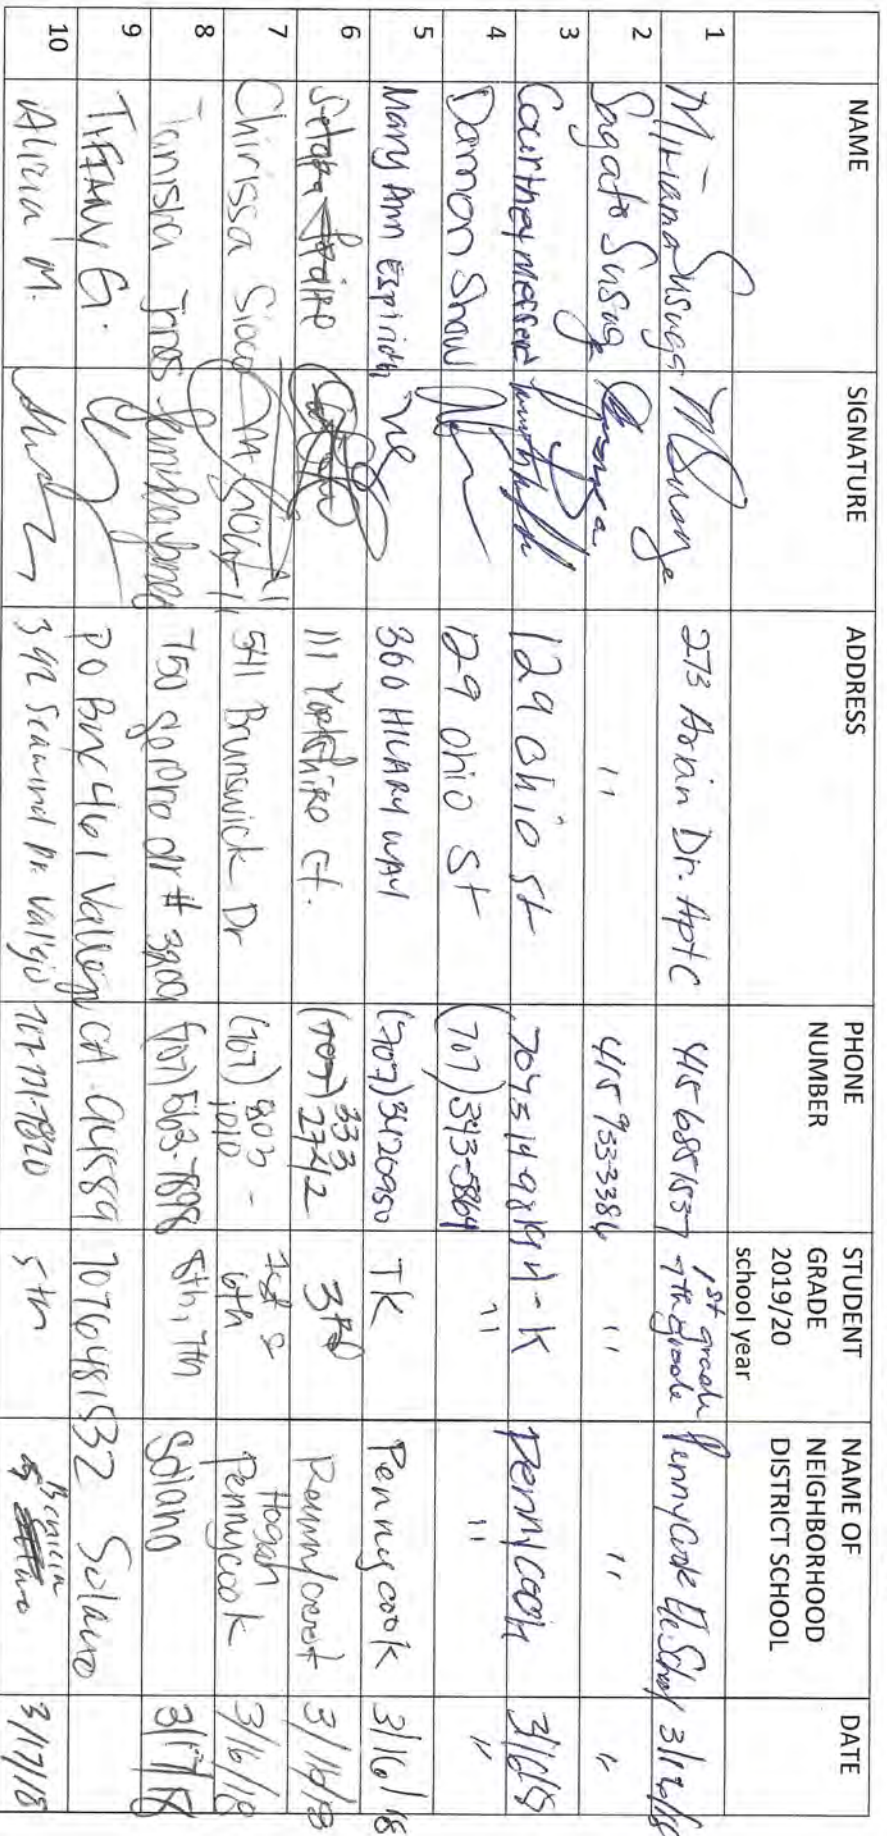 NAME SIGNATURE ADDRESS PHONE NUMBER STUDENT GRADE 2019/20 school year NAME OF NEIGHBORHOOD DISTRICT SCHOOL DATE
1 Miriama Susuga MSusuga 273 Dr. Apt C 415 685 1537 1st grade 7th grade PennyCook Ele. School 3/16/18
2 Sagato Susuga " 415 933-3386 " " "
3 Courtney 129 Ohio St K Pennycook 3/16/18
4 Damon Shaw 129 Ohio St (707) 343-5864 " " "
5 Mary Ann Espiridn 360 HILARY WAY (707) 3420950 TK Pennycook 3/16/18
6 111 Yorkshire Ct. (707) 333 2742 3rd 3/16/18
7 Chirissa 541 Brunswick Dr (707) 803 - 1010 1st & 6th Hogan Pennycook 3/16/18
8 Tanisha Jones 750 dr # (707) 563-7898 8th, 7th Solano 3/17/18
9 TIFFANY G. PO Box 461 Vallejo CA 94589 7076481532 Solano
10 Alicia M. 392 Seawind Dr. Vallejo 5th Benicia 3/17/18